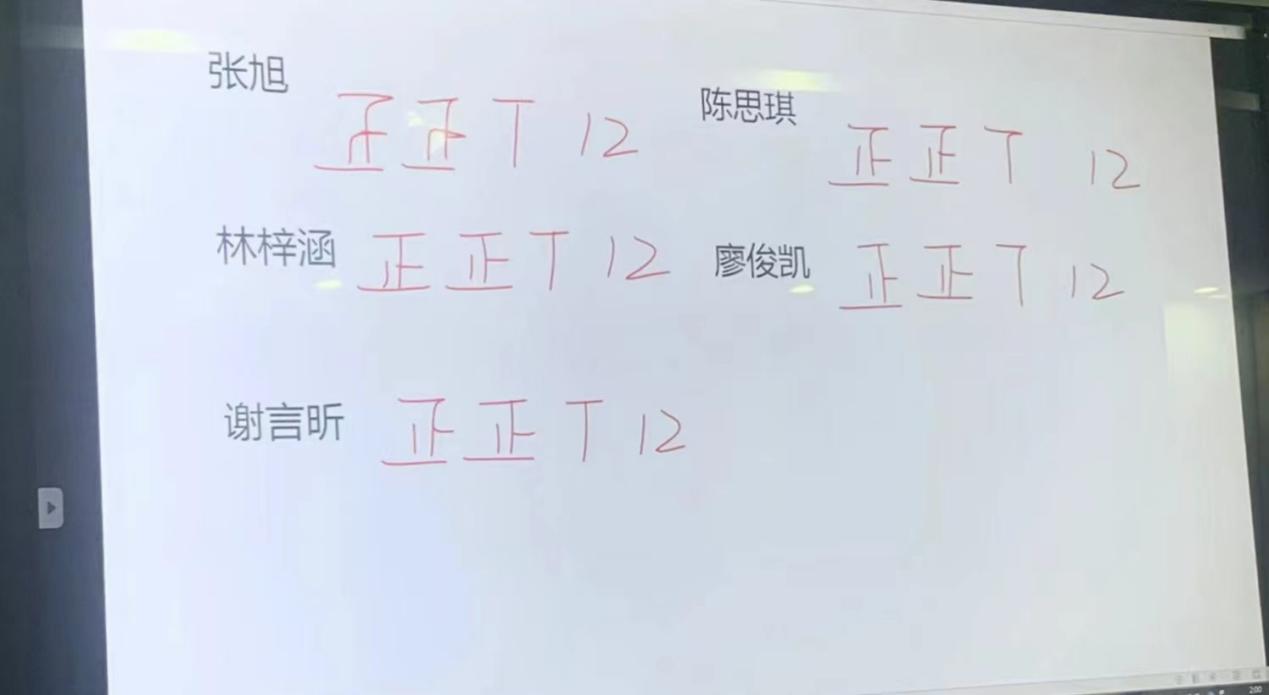 张旭 正正丅 12
陈思琪 正正丅 12
林梓涵 正正丅 12
廖俊凯 正正丅 12
谢言昕 正正丅 12
2:00